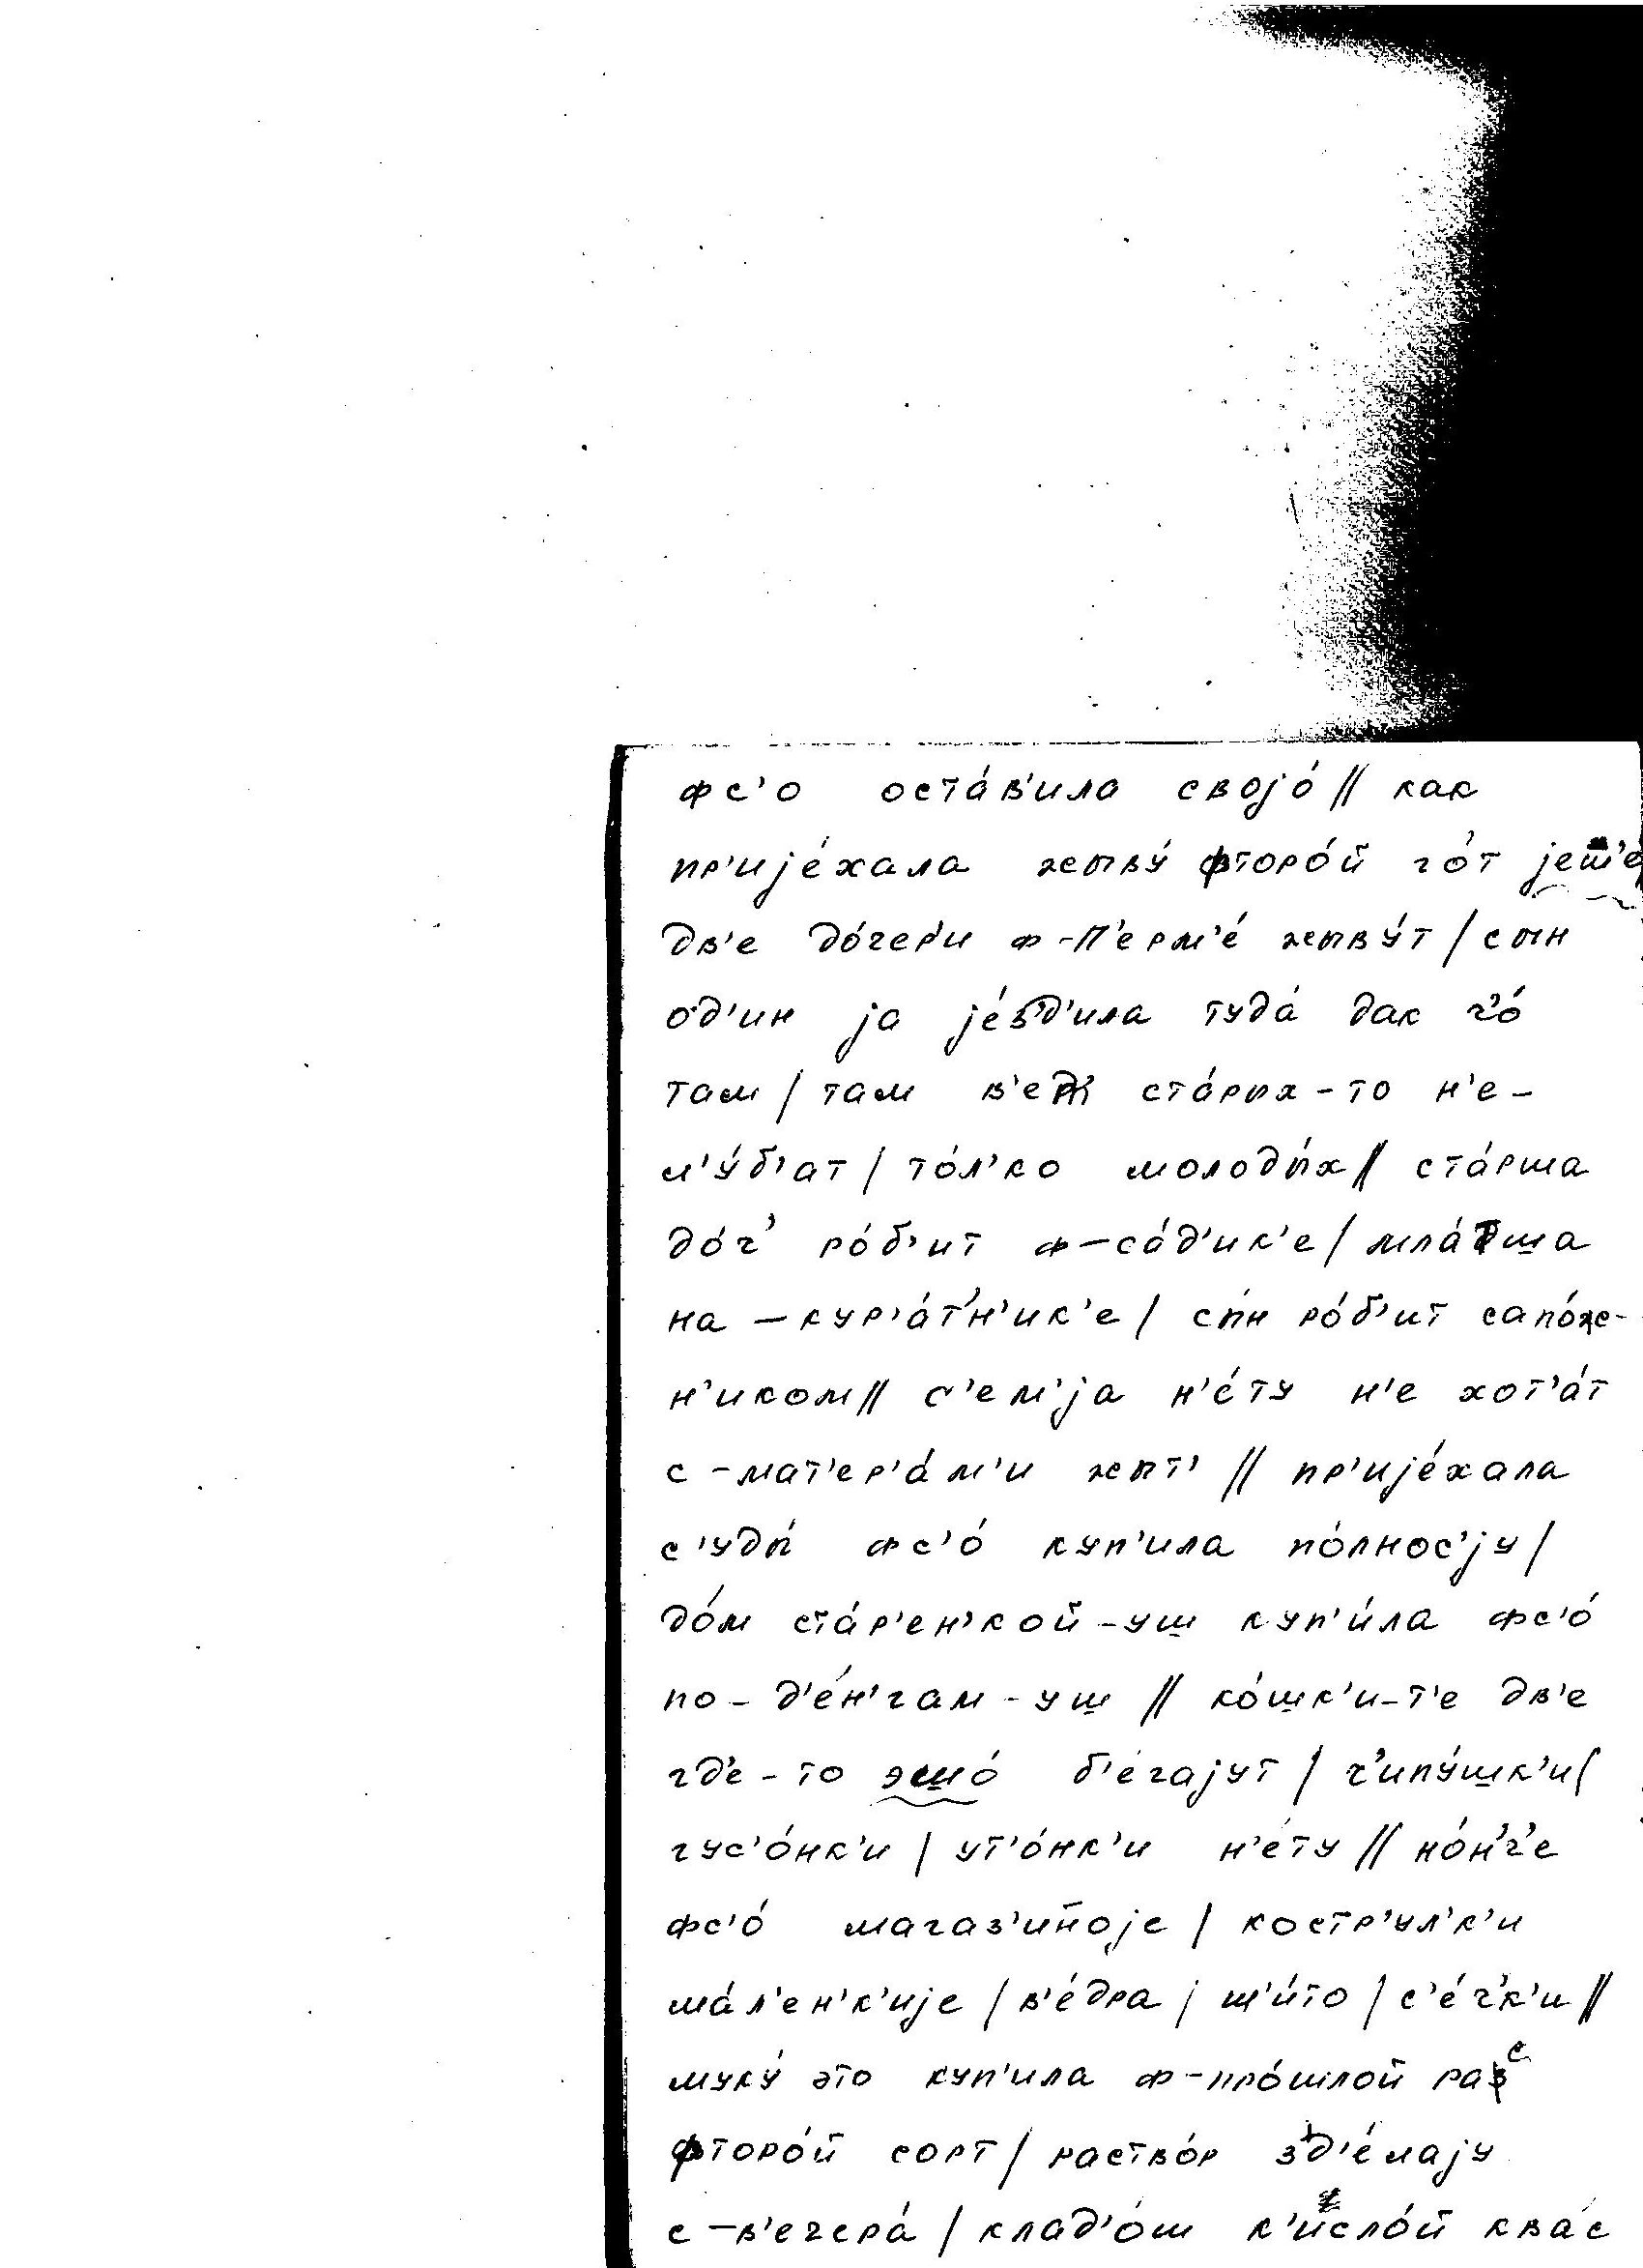 фс'о оста́в'ила своjо́ // как
пр'иjе́хала жыву́ фторо́й го́т jеш'е́
дв'е до́чер'и ф-П'ерм'е́ жыву́т / сын
од'ин jа jе́зд'ила туда́ дак ч'о́
там / там в'еш ста́рых-то н'е-
л'у́б'ат / то́л'ко молоды́х // ста́рша
до́ч' ро́б'ит ф-са́д'ик'е / мла́тша
на-кур'а́т'н'ик'е / сы́н ро́б'ит сапо́ж-
н'иком // с'ем'jа н'е́ту н'е хот'а́т
с-мат'ер'а́м'и жыт' // пр'иjе́хала
с'уды́ фс'о́ куп'ила по́лнос'jу /
до́м ста́р'ен'кой-уш куп'и́ла фс'о́
по-д'е́н'гам-уш // ко́шк'и-т'е дв'е
гд'е-то эшо́ б'е́гаjут / ч'ипу́шк'и /
гус'о́нк'и / ут'о́нк'и н'е́ту // но́н'ч'е
фс'о́ магаз'ин̄оjе / костр'ул'к'и
ма́л'ен'к'иjе / в'е́дра / ш'и́то / с'е́ч'к'и //
муку́ э́то куп'ила ф-про́шлой рас
фторо́й сорт / раство́р зд'е́лаjу
с-в'ечера́ / клад'о́ш к'исло́й ква́с